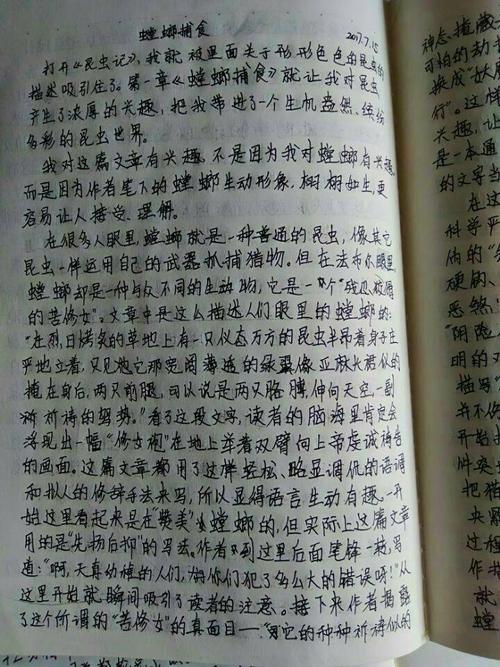 螳螂捕食
2017.7.15
打开《昆虫记》,我就被里面关于形形色色的昆虫的
描述吸引住了。第一章《螳螂捕食》就让我对昆虫
产生了浓厚的兴趣,把我带进了一个生机盎然、缤纷
多彩的昆虫世界。
我对这篇文章有兴趣,不是因为我对螳螂有兴趣,
而是因为作者笔下的螳螂生动形象,栩栩如生,更
容易让人接受、理解。
在很多人眼里,螳螂就是一种普通的昆虫,像其它
昆虫一样运用自己的武器扒捕猎物。但在法布尔眼里,
螳螂却是一种与众不同的生动物,它是一个
的苦修女"。文章中是这么描述人们眼里的螳螂的:
"在烈日烤炙的草地上有一只仪态万方的昆虫半昂着身子庄
严地立着,只见她它那宽阔薄透的绿翼像亚麻长裙似的
掩在身后,两只前腿,可以说是两只胳膊,伸向天空,一副
祈祷的姿势。"看了这段文字,读者的脑海里肯定会
浮现出一幅"修女袍"在地上举着双臂向上帝虔诚祷告
的画面。这篇文章都用了这样轻松、略显调侃的语调
和拟人的修辞手法来写,所以显得语言生动有趣。一开
始这里看起来是在"赞美"螳螂的,但实际上这篇文章
用的是"先扬后抑"的写法。作者写到这里后面笔锋一转,写
道:"啊,天真幼稚的人们,你们犯了多么大的错误呀!"从
这里开始就瞬间吸引了读者的注意。接下来作者揭露
了这个所谓的"苦修女"的真面目——"它的种种祈祷似的
神态
可怕的动
换成"妖
行"。这样
兴趣,让
是一本通
的文字当
在这
科学严
硬
恶煞
"阴险
明的
描写"
并不
开始
件夹
把猎
央
过
作书
就